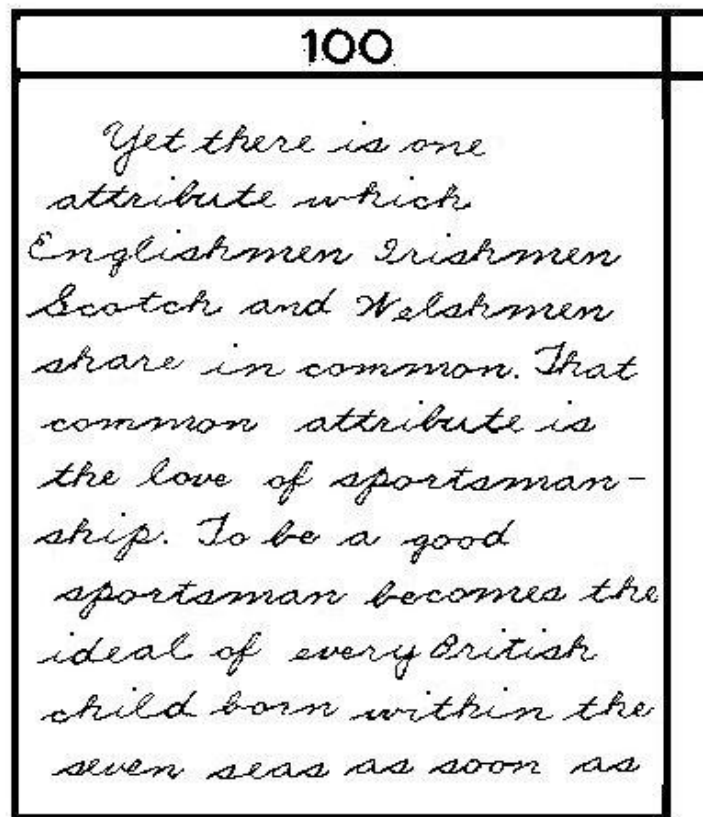 100
Yet there is one
attribute which
Englishmen Irishmen
Scotch and Welshmen
share in common. That
common attribute is
the love of sportsman-
ship. To be a good
sportsman becomes the
ideal of every British
child born within the
seven seas as soon as